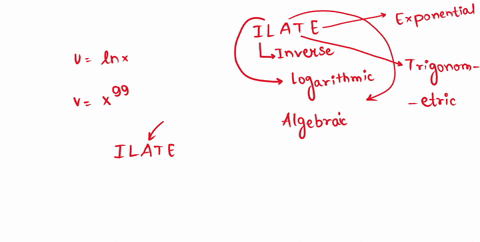 U = ln x
V = x^99
ILATE
ILATE
Exponential
Inverse
Logarithmic
Trigonom-
-etric
Algebraic